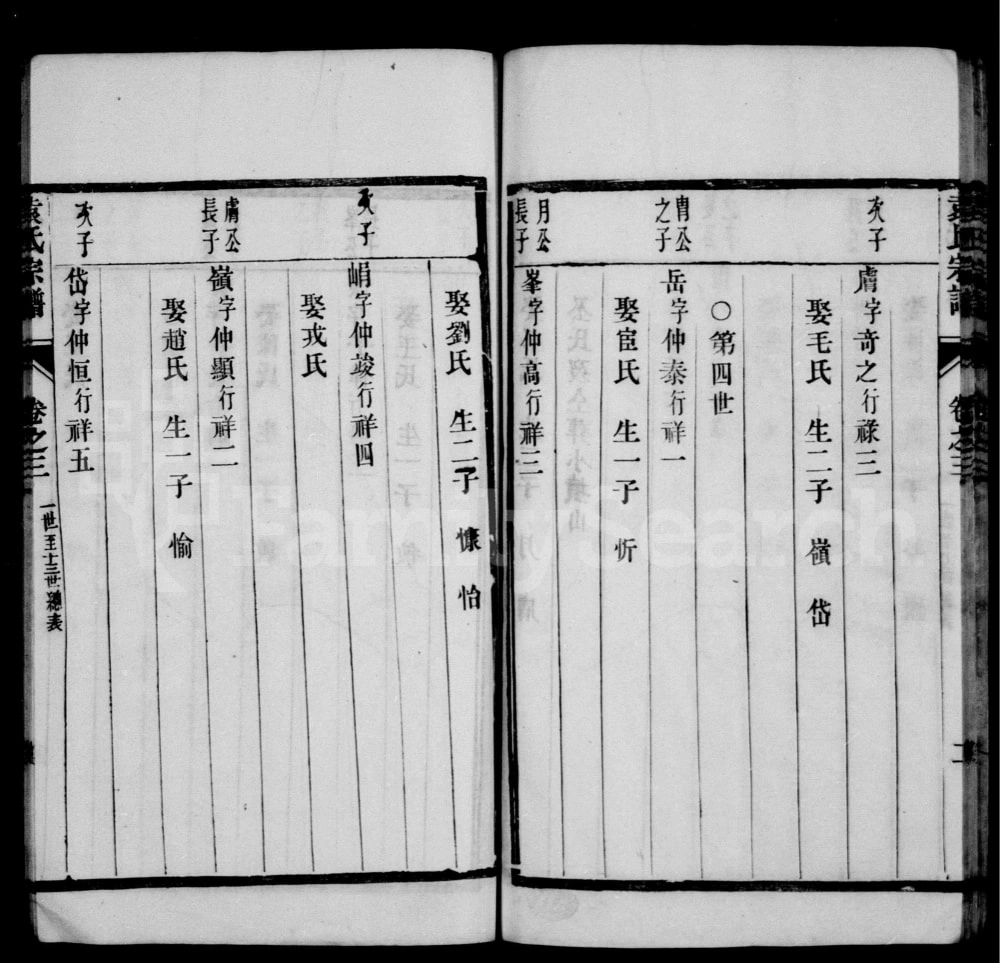 袁氏宗譜 卷之三 二
次子 膚字奇之行祿三
娶毛氏 生二子 嶺 岱
○第四世
胄公之子 岳字仲泰行祥一
娶宦氏 生一子 忻
月公長子 峯字仲高行祥三
娶劉氏 生二子 慷 怡
次子 峭字仲竣行祥四
娶戎氏
膚公長子 嶺字仲顯行祥二
娶趙氏 生一子 愉
次子 岱字仲恒行祥五
袁氏宗譜 卷之三 一世至十三世總表